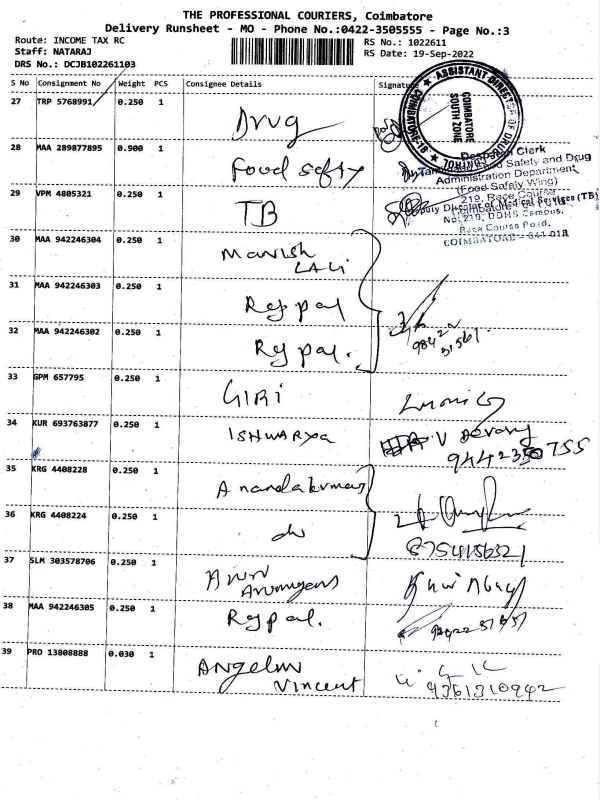 THE PROFESSIONAL COURIERS, Coimbatore
Delivery Runsheet - MO - Phone No.:0422-3505555 - Page No.:3
Route: INCOME TAX RC
RS No.: 1022611
Staff: NATARAJ
RS Date: 19-Sep-2022
DRS No.: DCJB102261103
S No Consignment No Weight PCS Consignee Details Signature
27 TRP 5768991 0.250 1 Drug
ASSISTANT DIRECTOR OF DRUGS CONTROL
COIMBATORE
SOUTH ZONE
28 MAA 289877895 0.900 1 Food safty
Despatch Clerk
Tamilnadu Food Safety and Drug
Administration Department
(Food Safety Wing)
219, Race Course
29 VPM 4805321 0.250 1 TB
Deputy Director of Medical Services (TB)
No: 219, DDHS Campus,
Race Course Road,
COIMBATORE - 641 018
30 MAA 942246304 0.250 1 Manish
LALi
31 MAA 942246303 0.250 1 Rajpal
32 MAA 942246302 0.250 1 Rajpal.
98422
51561
33 GPM 657795 0.250 1 GIRI
34 KUR 693763877 0.250 1 ISHWARYA
V Devaraj
9442350755
35 KRG 4408228 0.250 1 Anandakumar
36 KRG 4408224 0.250 1 do
8754156521
37 SLM 303578706 0.250 1 Arun
Arumugam
38 MAA 942246305 0.250 1 Rajpal.
39 PRO 13808888 0.030 1 Angelin
Vincent
9361310942